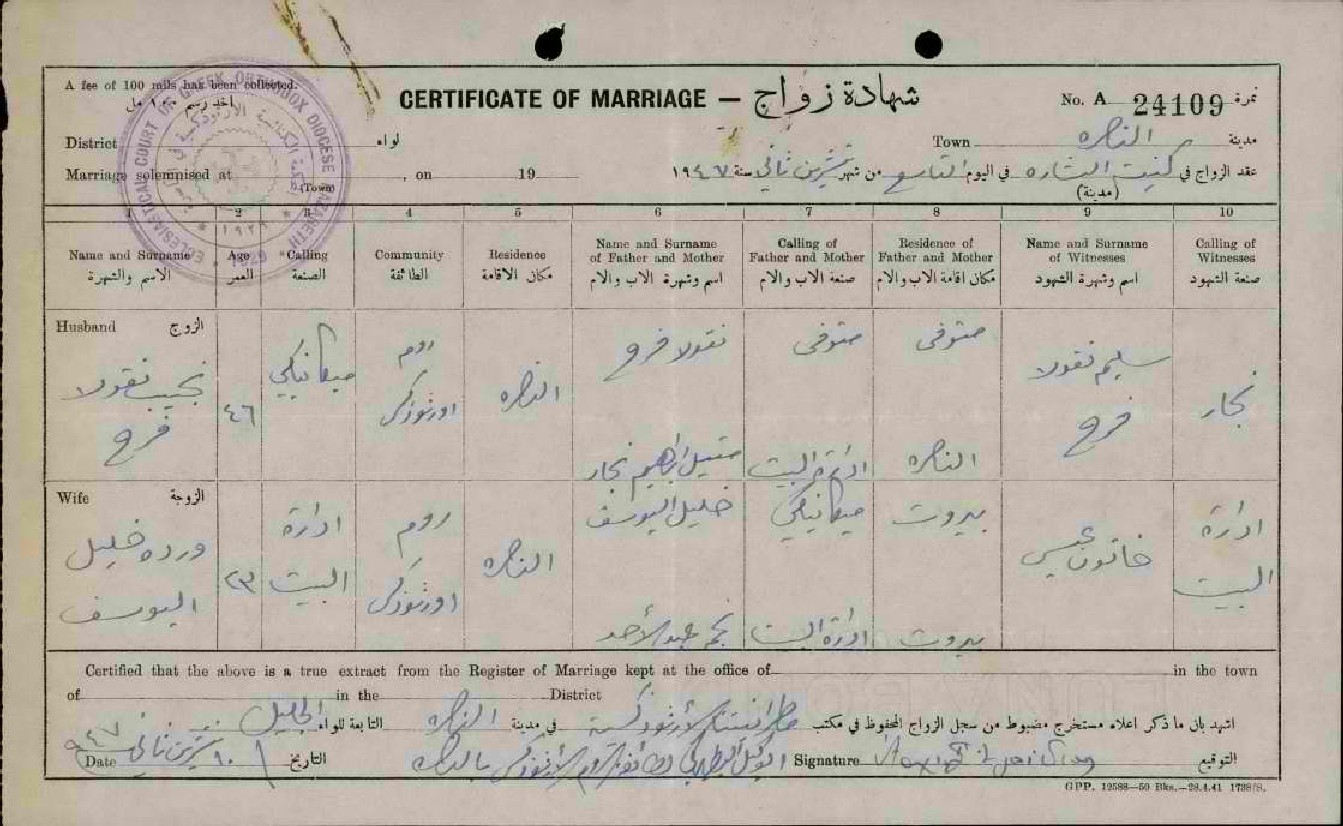 A fee of 100 mils has been collected.
اخذ رسم ١٠٠ مل
CERTIFICATE OF MARRIAGE — شهادة زواج
No. A 24109 نمرة
District لواء
Town الناصره مدينة
Marriage solemnised at , on 19
(Town)
عقد الزواج في كنيت البشاره في اليوم التاسع من شهر تشرين ثاني سنة ١٩٤٧
(مدينة)
ECCLESIASTICAL COURT OF GREEK ORTHODOX DIOCESE NAZARETH
* ١٩٢٩ *
* 1929 *
1 2 3 4 5 6 7 8 9 10
Name and Surname
الاسم والشهرة
Age
العمر
Calling
الصنعة
Community
الطائفة
Residence
مكان الاقامة
Name and Surname
of Father and Mother
اسم وشهرة الاب والام
Calling of
Father and Mother
صنعة الاب والام
Residence of
Father and Mother
مكان اقامة الاب والام
Name and Surname
of Witnesses
اسم وشهرة الشهود
Calling of
Witnesses
صنعة الشهود
Husband الزوج
نجيب نقولا
فرح
٤٦
ميكانيكي
روم
اورثوذكس
الناصره
نقولا فرح
ابراهيم نجار
متوفى
ادارة البيت
متوفى
الناصره
سليم نقولا
فرح
نجار
Wife الزوجة
ورده خليل
اليوسف
٢٣
ادارة
البيت
روم
اورثوذكس
الناصره
خليل اليوسف
عبد الأحد
ميكانيكي
ادارة البيت
بيروت
بيروت
خاتون عيسى
ادارة
البيت
Certified that the above is a true extract from the Register of Marriage kept at the office of in the town
of in the District
اشهد بان ما ذكر اعلاه مستخرج مضبوط من سجل الزواج المحفوظ في مكتب مطرانيتنا الأرثوذكسية في مدينة الناصره التابعة للواء الجليل
Date ١٠ تشرين ثاني ٩٤٧ التاريخ
الوكيل البطريركي الروم الأرثوذكس بالناصره
Signature التوقيع
GPP. 12588—50 Bks.—28.4.41 1738/S.